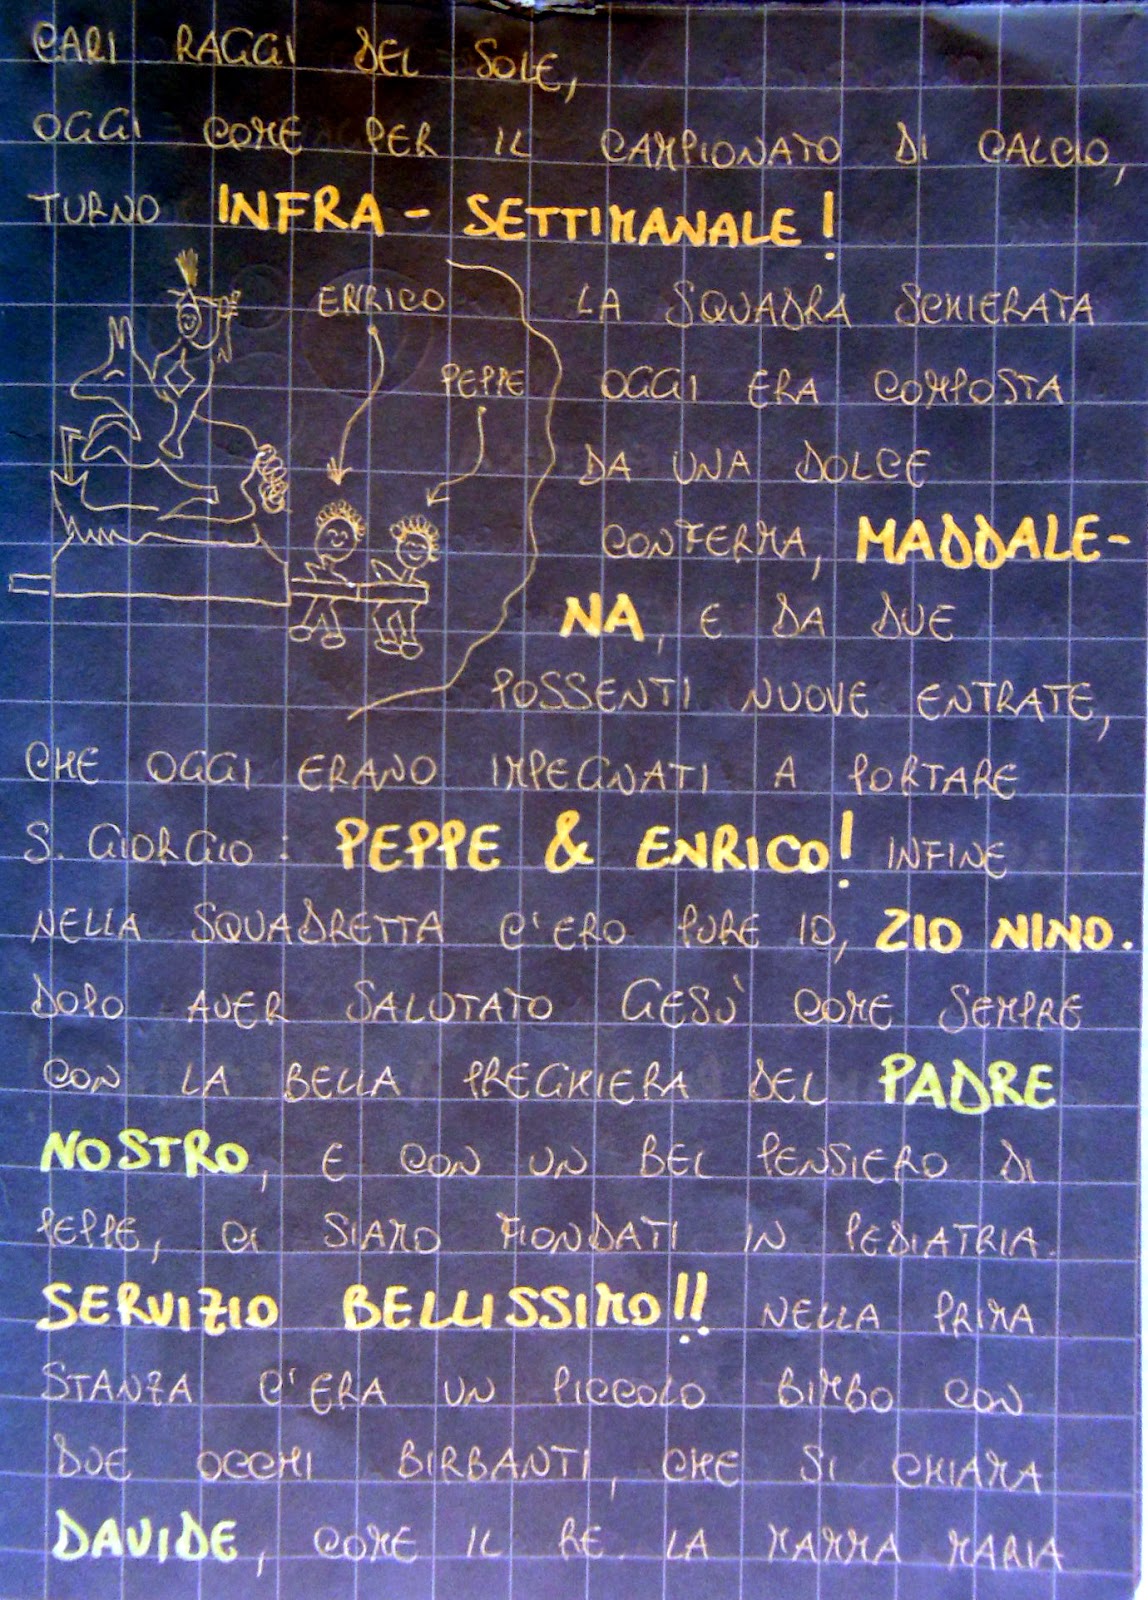 CARI RAGGI DEL SOLE,
OGGI COME PER IL CAMPIONATO DI CALCIO,
TURNO INFRA-SETTIMANALE!
ENRICO
PEPPE
LA SQUADRA SCHIERATA
OGGI ERA COMPOSTA
DA UNA DOLCE
CONFERMA, MADDALE-
NA, E DA DUE
POSSENTI NUOVE ENTRATE,
CHE OGGI ERANO IMPEGNATI A PORTARE
S. GIORGIO: PEPPE & ENRICO! INFINE
NELLA SQUADRETTA C'ERO PURE IO, ZIO NINO.
DOPO AVER SALUTATO GESÙ COME SEMPRE
CON LA BELLA PREGHIERA DEL PADRE
NOSTRO, E CON UN BEL PENSIERO DI
PEPPE, CI SIAMO FIONDATI IN PEDIATRIA.
SERVIZIO BELLISSIMO!! NELLA PRIMA
STANZA C'ERA UN PICCOLO BIMBO CON
DUE OCCHI BIRBANTI, CHE SI CHIAMA
DAVIDE, COME IL RE. LA MAMMA MARIA